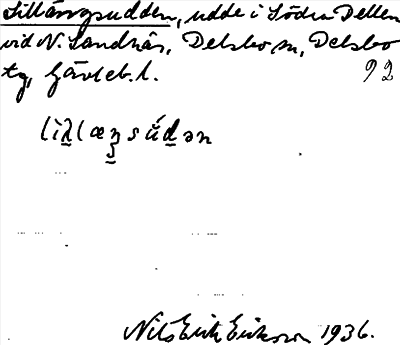 Lillängsudden, udde i Södra Dellen
vid N. Sandnäs, Delsbo sn, Delsbo
tg, Gävleb. l. 92
Nils Erik Eriksson 1936.